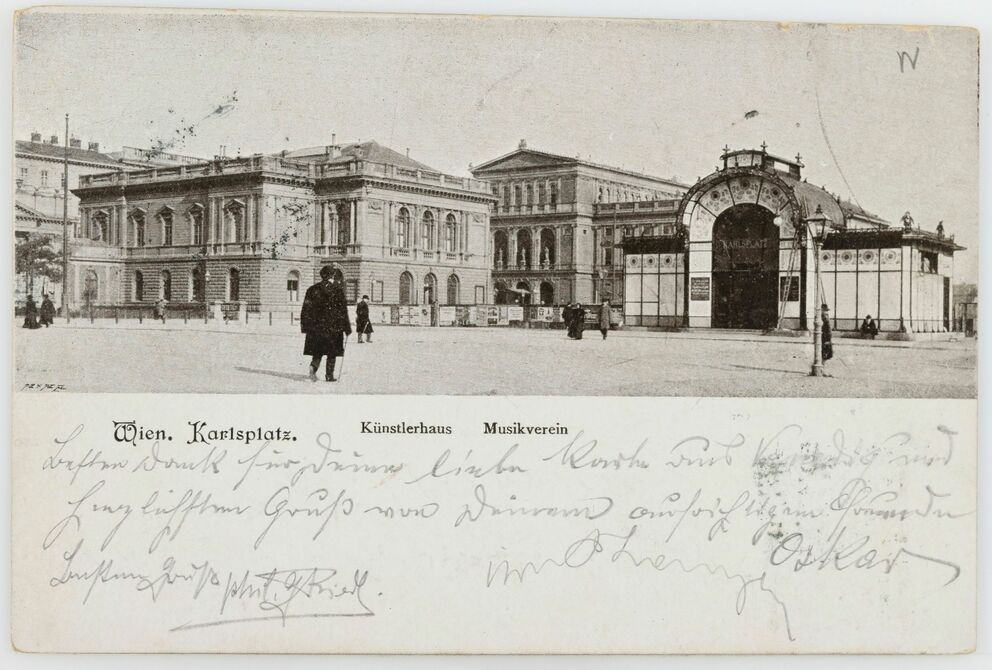 W
KARLSPLATZ
Wien. Karlsplatz. Künstlerhaus Musikverein
Besten Dank für Deine liebe Karte aus und
herzlichsten Gruß von Deinem aufrichtigen Freunde
Oskar
Besten Gruß